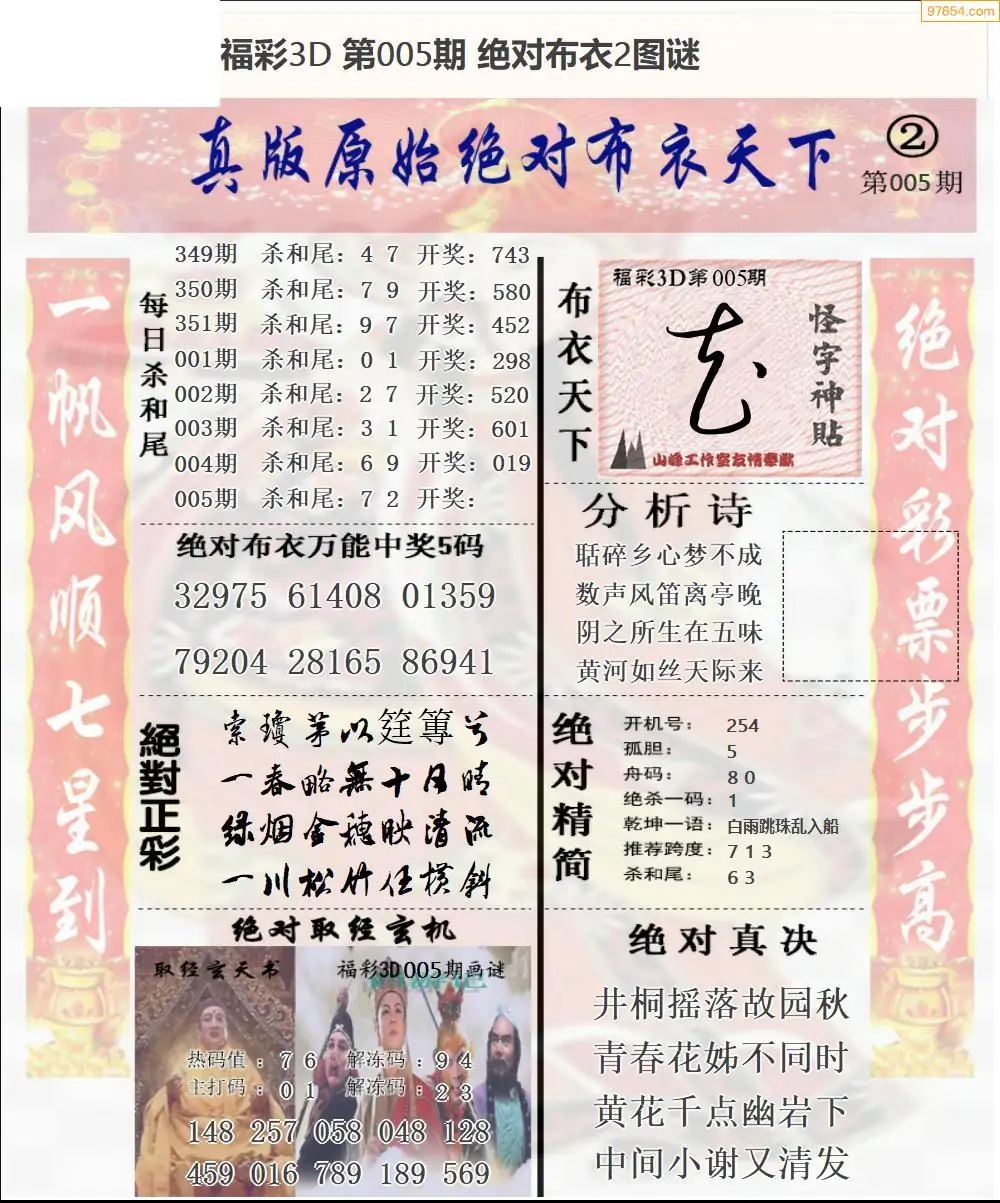 97654.com
福彩3D 第005期 绝对布衣2图谜
真版原始绝对布衣天下
②
第005期
一帆风顺七星到
每日杀和尾
349期 杀和尾：4 7 开奖：743
350期 杀和尾：7 9 开奖：580
351期 杀和尾：9 7 开奖：452
001期 杀和尾：0 1 开奖：298
002期 杀和尾：2 7 开奖：520
003期 杀和尾：3 1 开奖：601
004期 杀和尾：6 9 开奖：019
005期 杀和尾：7 2 开奖：
绝对布衣万能中奖5码
32975 61408 01359
79204 28165 86941
絕對正彩
索瓊茅以筳篿兮
一春略無十日晴
绿烟金穗映清流
一川松竹任横斜
绝对取经玄机
取经玄天书
福彩3D005期画谜
热码值：7 6 解冻码：9 4
主打码：0 1 解冻码：2 3
148 257 058 048 128
459 016 789 189 569
布衣天下
福彩3D第005期
怪字神貼
山峰工作室友情奉献
分析诗
聒碎乡心梦不成
数声风笛离亭晚
阴之所生在五味
黄河如丝天际来
绝对精简
开机号：254
孤胆：5
舟码：8 0
绝杀一码：1
乾坤一语：白雨跳珠乱入船
推荐跨度：7 1 3
杀和尾：6 3
绝对真决
井桐摇落故园秋
青春花姊不同时
黄花千点幽岩下
中间小谢又清发
绝对彩票步步高